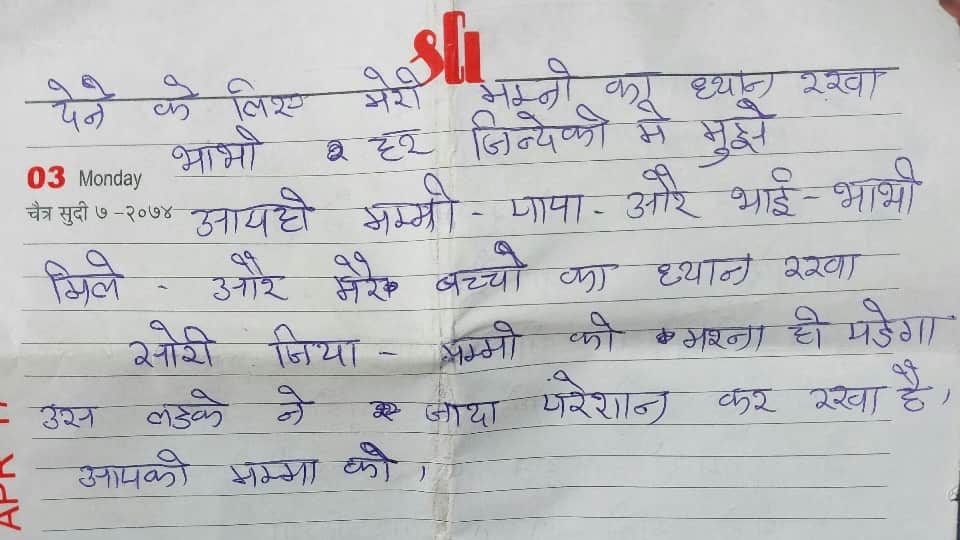 SCI
पेने के लिए मेरी मम्नी का ध्यान रखा
भाभी हर जिन्देकी मे मुझे
03 Monday
चैत्र सुदी ७ -२०७४
आयही मम्मी - पापा - और भाई - भाभी
मिले - और मेरे बच्चो का ध्यान रखा
सोरी जिया - मम्मी को मरना ही पडेगा
उस लडके ने जादा परेशान कर रखा है,
APR 17
आपकी मम्मा की,